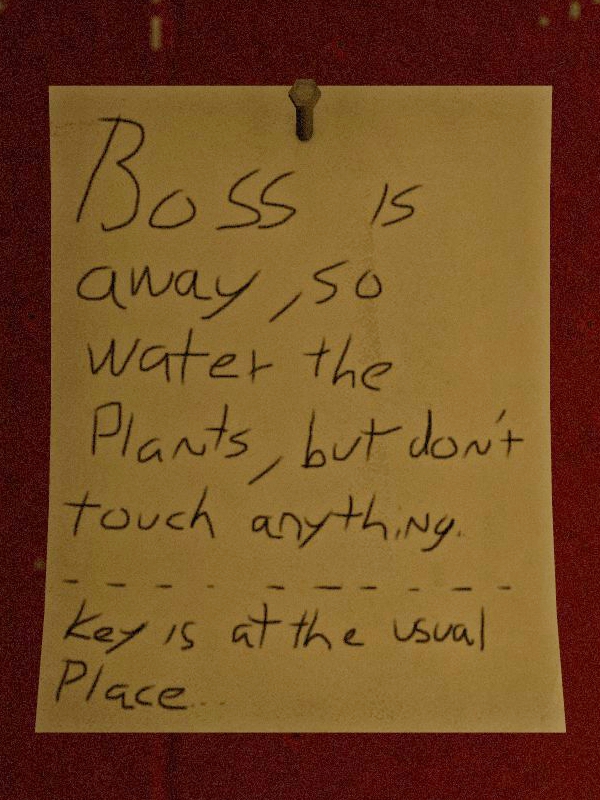 Boss is
away, so
water the
Plants, but don't
touch anything.
- - - - - - - - - -
Key is at the usual
Place...